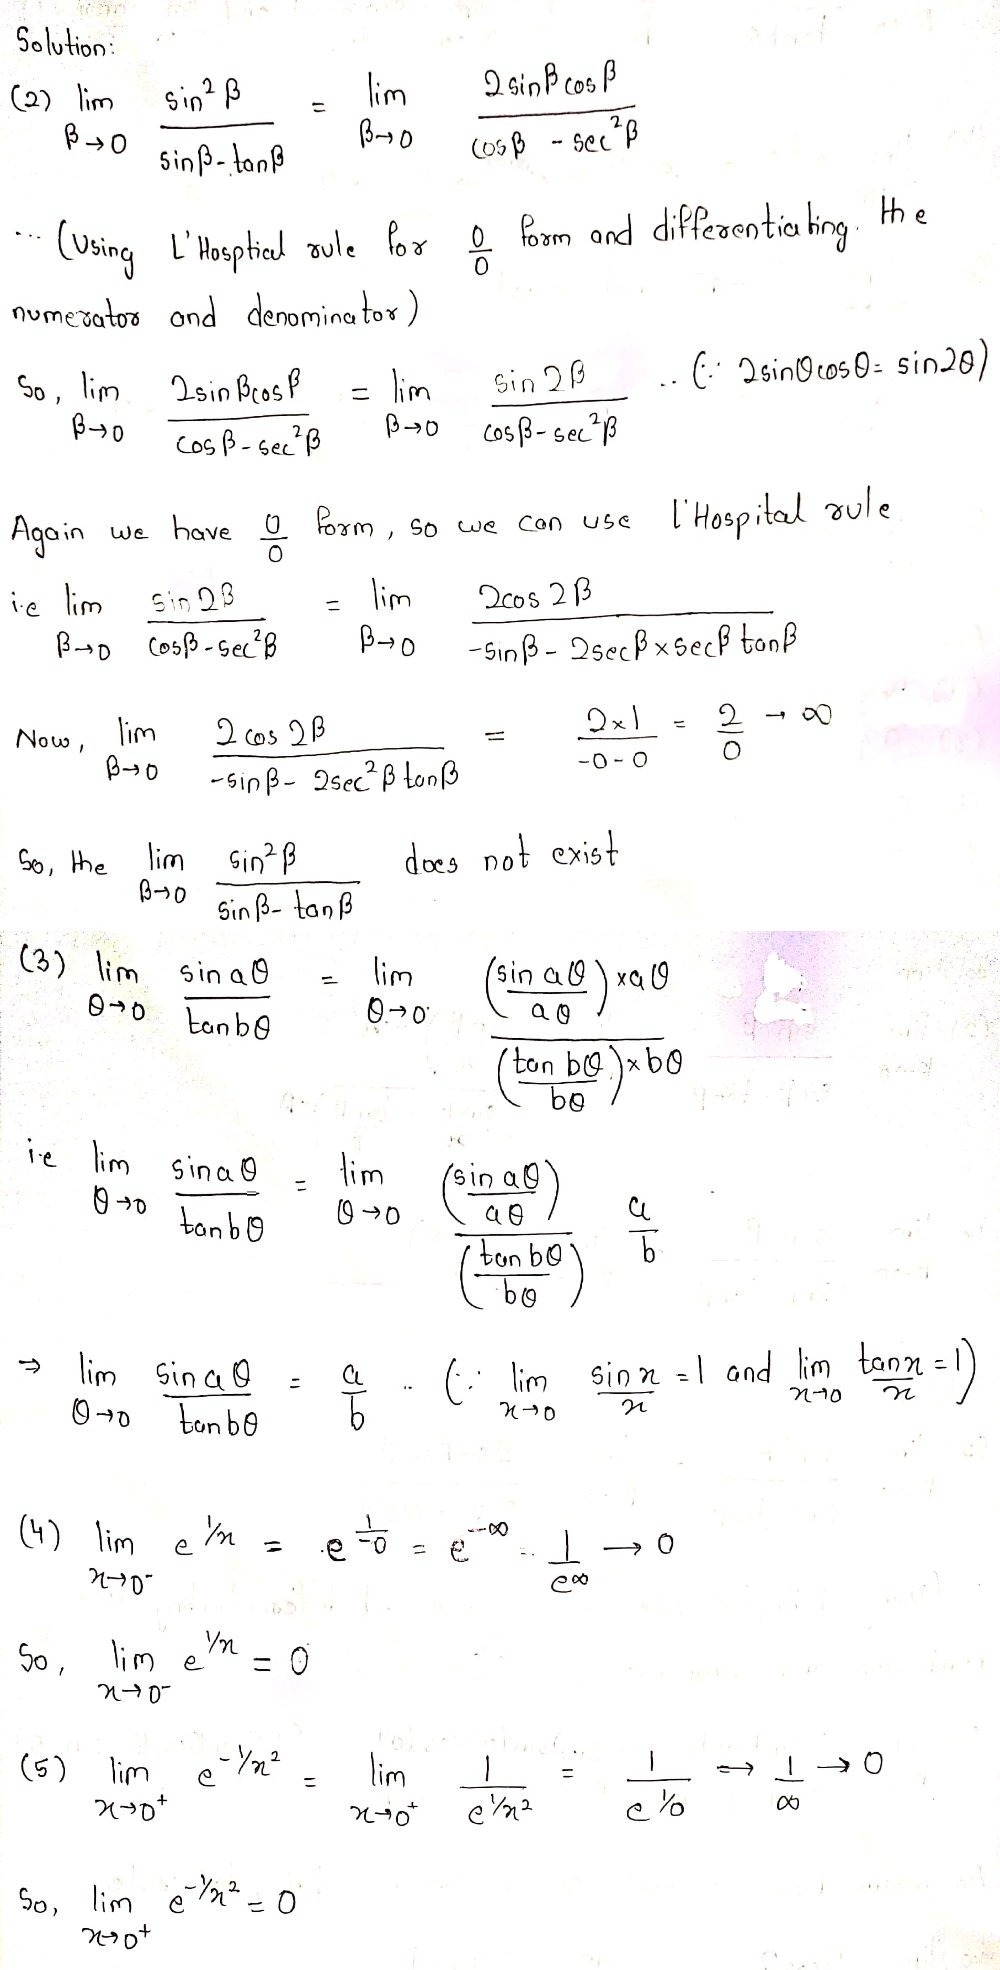 Solution:
(2) lim β→0 sin²β / sinβ - tanβ = lim β→0 2sinβ cosβ / cosβ - sec²β
... (Using L'Hosptical rule for 0/0 form and differentiating. the
numerator and denominator)
So, lim β→0 2sinβcosβ / cosβ - sec²β = lim β→0 sin2β / cosβ - sec²β .. (∵ 2sinθcosθ = sin2θ)
Again we have 0/0 form, so we can use L'Hospital rule
i.e lim β→0 sin2β / cosβ - sec²β = lim β→0 2cos2β / -sinβ - 2secβ × secβ tanβ
Now, lim β→0 2cos2β / -sinβ - 2sec²β tanβ = 2×1 / -0-0 = 2/0 → ∞
So, the lim β→0 sin²β / sinβ - tanβ does not exist
(3) lim θ→0 sinaθ / tanbθ = lim θ→0 (sin aθ / aθ) × aθ / (tan bθ / bθ) × bθ
i.e lim θ→0 sinaθ / tanbθ = lim θ→0 (sin aθ / aθ) / (tan bθ / bθ) a/b
⇒ lim θ→0 sinaθ / tanbθ = a/b .. (∵ lim x→0 sinx / x = 1 and lim x→0 tanx / x = 1)
(4) lim x→0⁻ e^1/x = e^1/-0 = e^-∞ .. 1/e^∞ → 0
So, lim x→0⁻ e^1/x = 0
(5) lim x→0⁺ e^-1/x² = lim x→0⁺ 1 / e^1/x² = 1 / e^1/0 → 1/∞ → 0
So, lim x→0⁺ e^-1/x² = 0